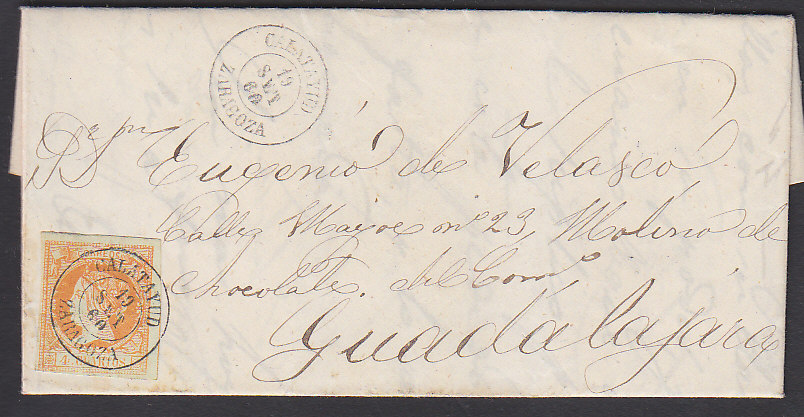 CALATAYUD
19
SET
60
ZARAGOZA
Eugenio de Velasco
Calle Mayor nº 23, Molino de
Chocolate del Comº
Guadalajara
CORREOS
CALATAYUD
19
SET
60
ZARAGOZA